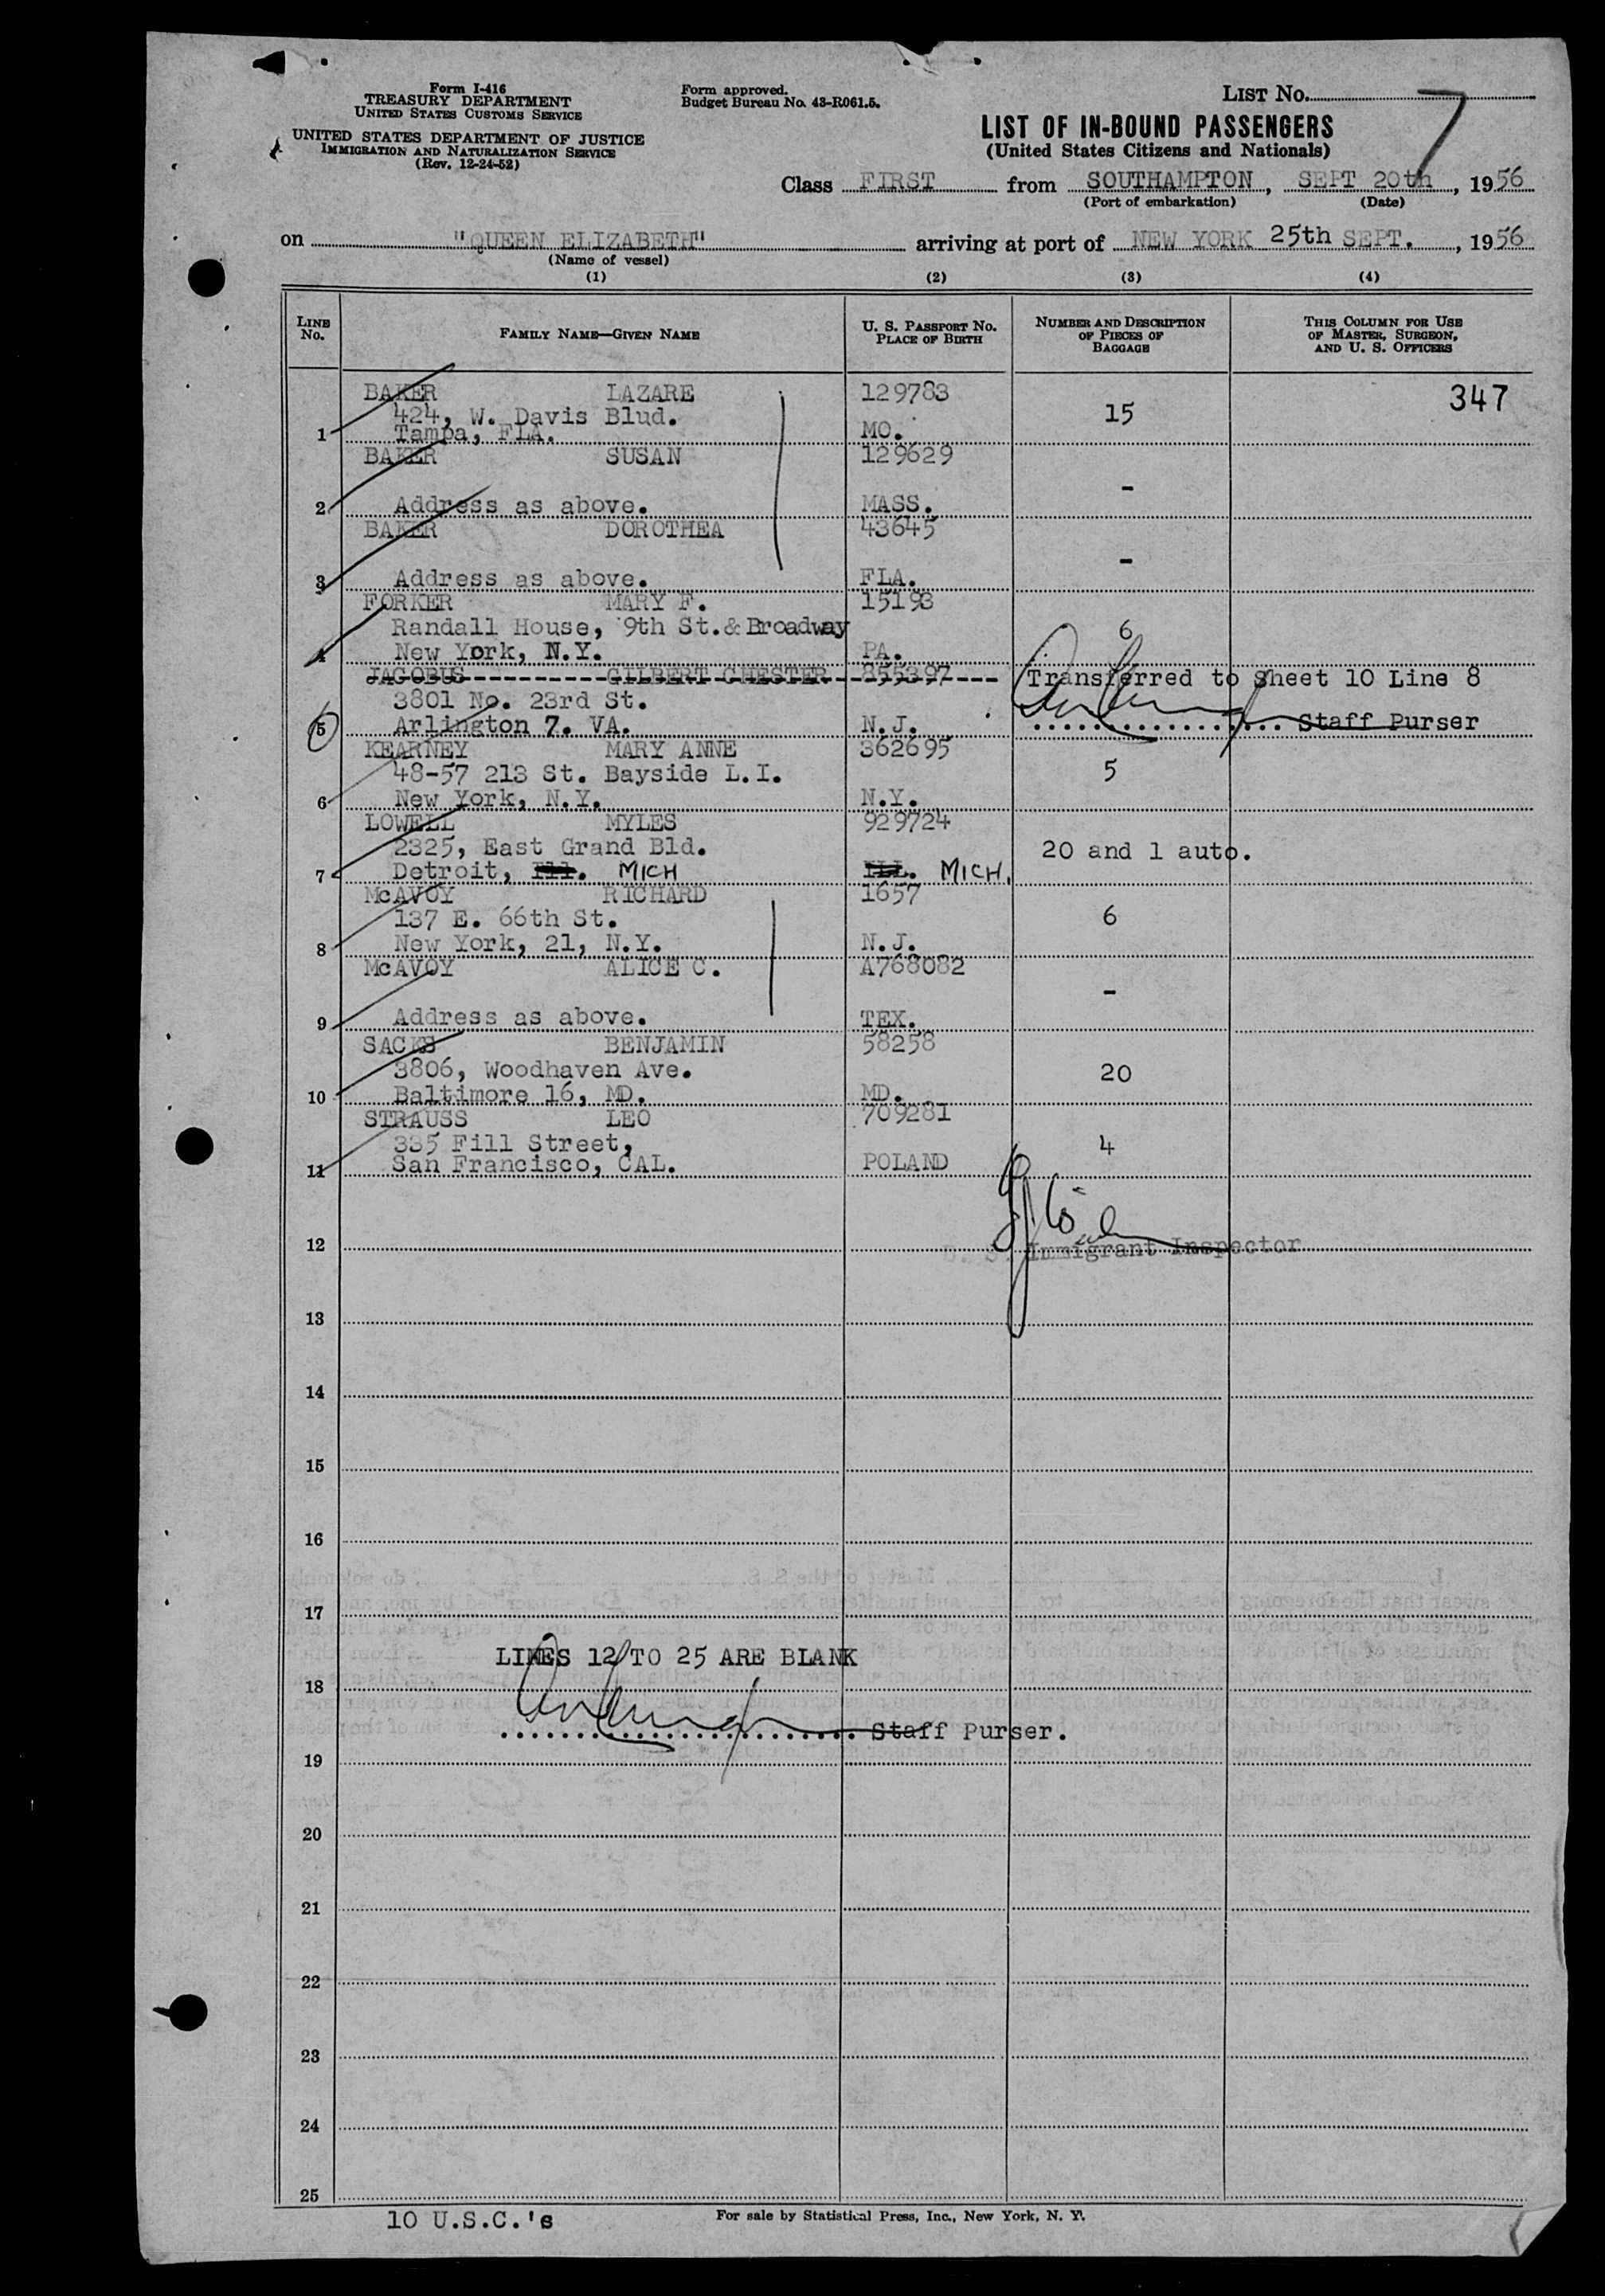 Form I-416
TREASURY DEPARTMENT
UNITED STATES CUSTOMS SERVICE
UNITED STATES DEPARTMENT OF JUSTICE
IMMIGRATION AND NATURALIZATION SERVICE
(Rev. 12-24-52)
Form approved.
Budget Bureau No. 43-R061.5.
LIST No. 7
LIST OF IN-BOUND PASSENGERS
(United States Citizens and Nationals)
Class FIRST from SOUTHAMPTON, SEPT 20th, 1956
(Port of embarkation) (Date)
on "QUEEN ELIZABETH" arriving at port of NEW YORK 25th SEPT., 1956
(Name of vessel)
(1) (2) (3) (4)
LINE No. FAMILY NAME—GIVEN NAME U. S. PASSPORT No. PLACE OF BIRTH NUMBER AND DESCRIPTION OF PIECES OF BAGGAGE THIS COLUMN FOR USE OF MASTER, SURGEON, AND U. S. OFFICERS
BAKER LAZARE 129783 347
424, W. Davis Blud. 15
1 Tampa, FLA. MO.
BAKER SUSAN 129629
-
2 Address as above. MASS.
BAKER DOROTHEA 43645
-
3 Address as above. FLA.
FORKER MARY F. 15193
Randall House, 9th St.& Broadway 6
4 New York, N.Y. PA.
JACOBUS GILBERT CHESTER 855397 Transferred to Sheet 10 Line 8
3801 No. 23rd St.
5 Arlington 7. VA. N.J. Staff Purser
KEARNEY MARY ANNE 362695
48-57 213 St. Bayside L.I. 5
6 New York, N.Y. N.Y.
LOWELL MYLES 929724
2325, East Grand Bld. 20 and 1 auto.
7 Detroit, Ill. MICH ILL. MICH.
McAVOY RICHARD 1657
137 E. 66th St. 6
8 New York, 21, N.Y. N.J.
McAVOY ALICE C. A768082
-
9 Address as above. TEX.
SACKS BENJAMIN 58258
3806, Woodhaven Ave. 20
10 Baltimore 16, MD. MD.
STRAUSS LEO 709281
335 Fill Street, 4
11 San Francisco, CAL. POLAND
12 U. S. Immigrant Inspector
13
14
15
16
17
LINES 12 TO 25 ARE BLANK
18
Staff Purser.
19
20
21
22
23
24
25
10 U.S.C.'s
For sale by Statistical Press, Inc., New York, N. Y.